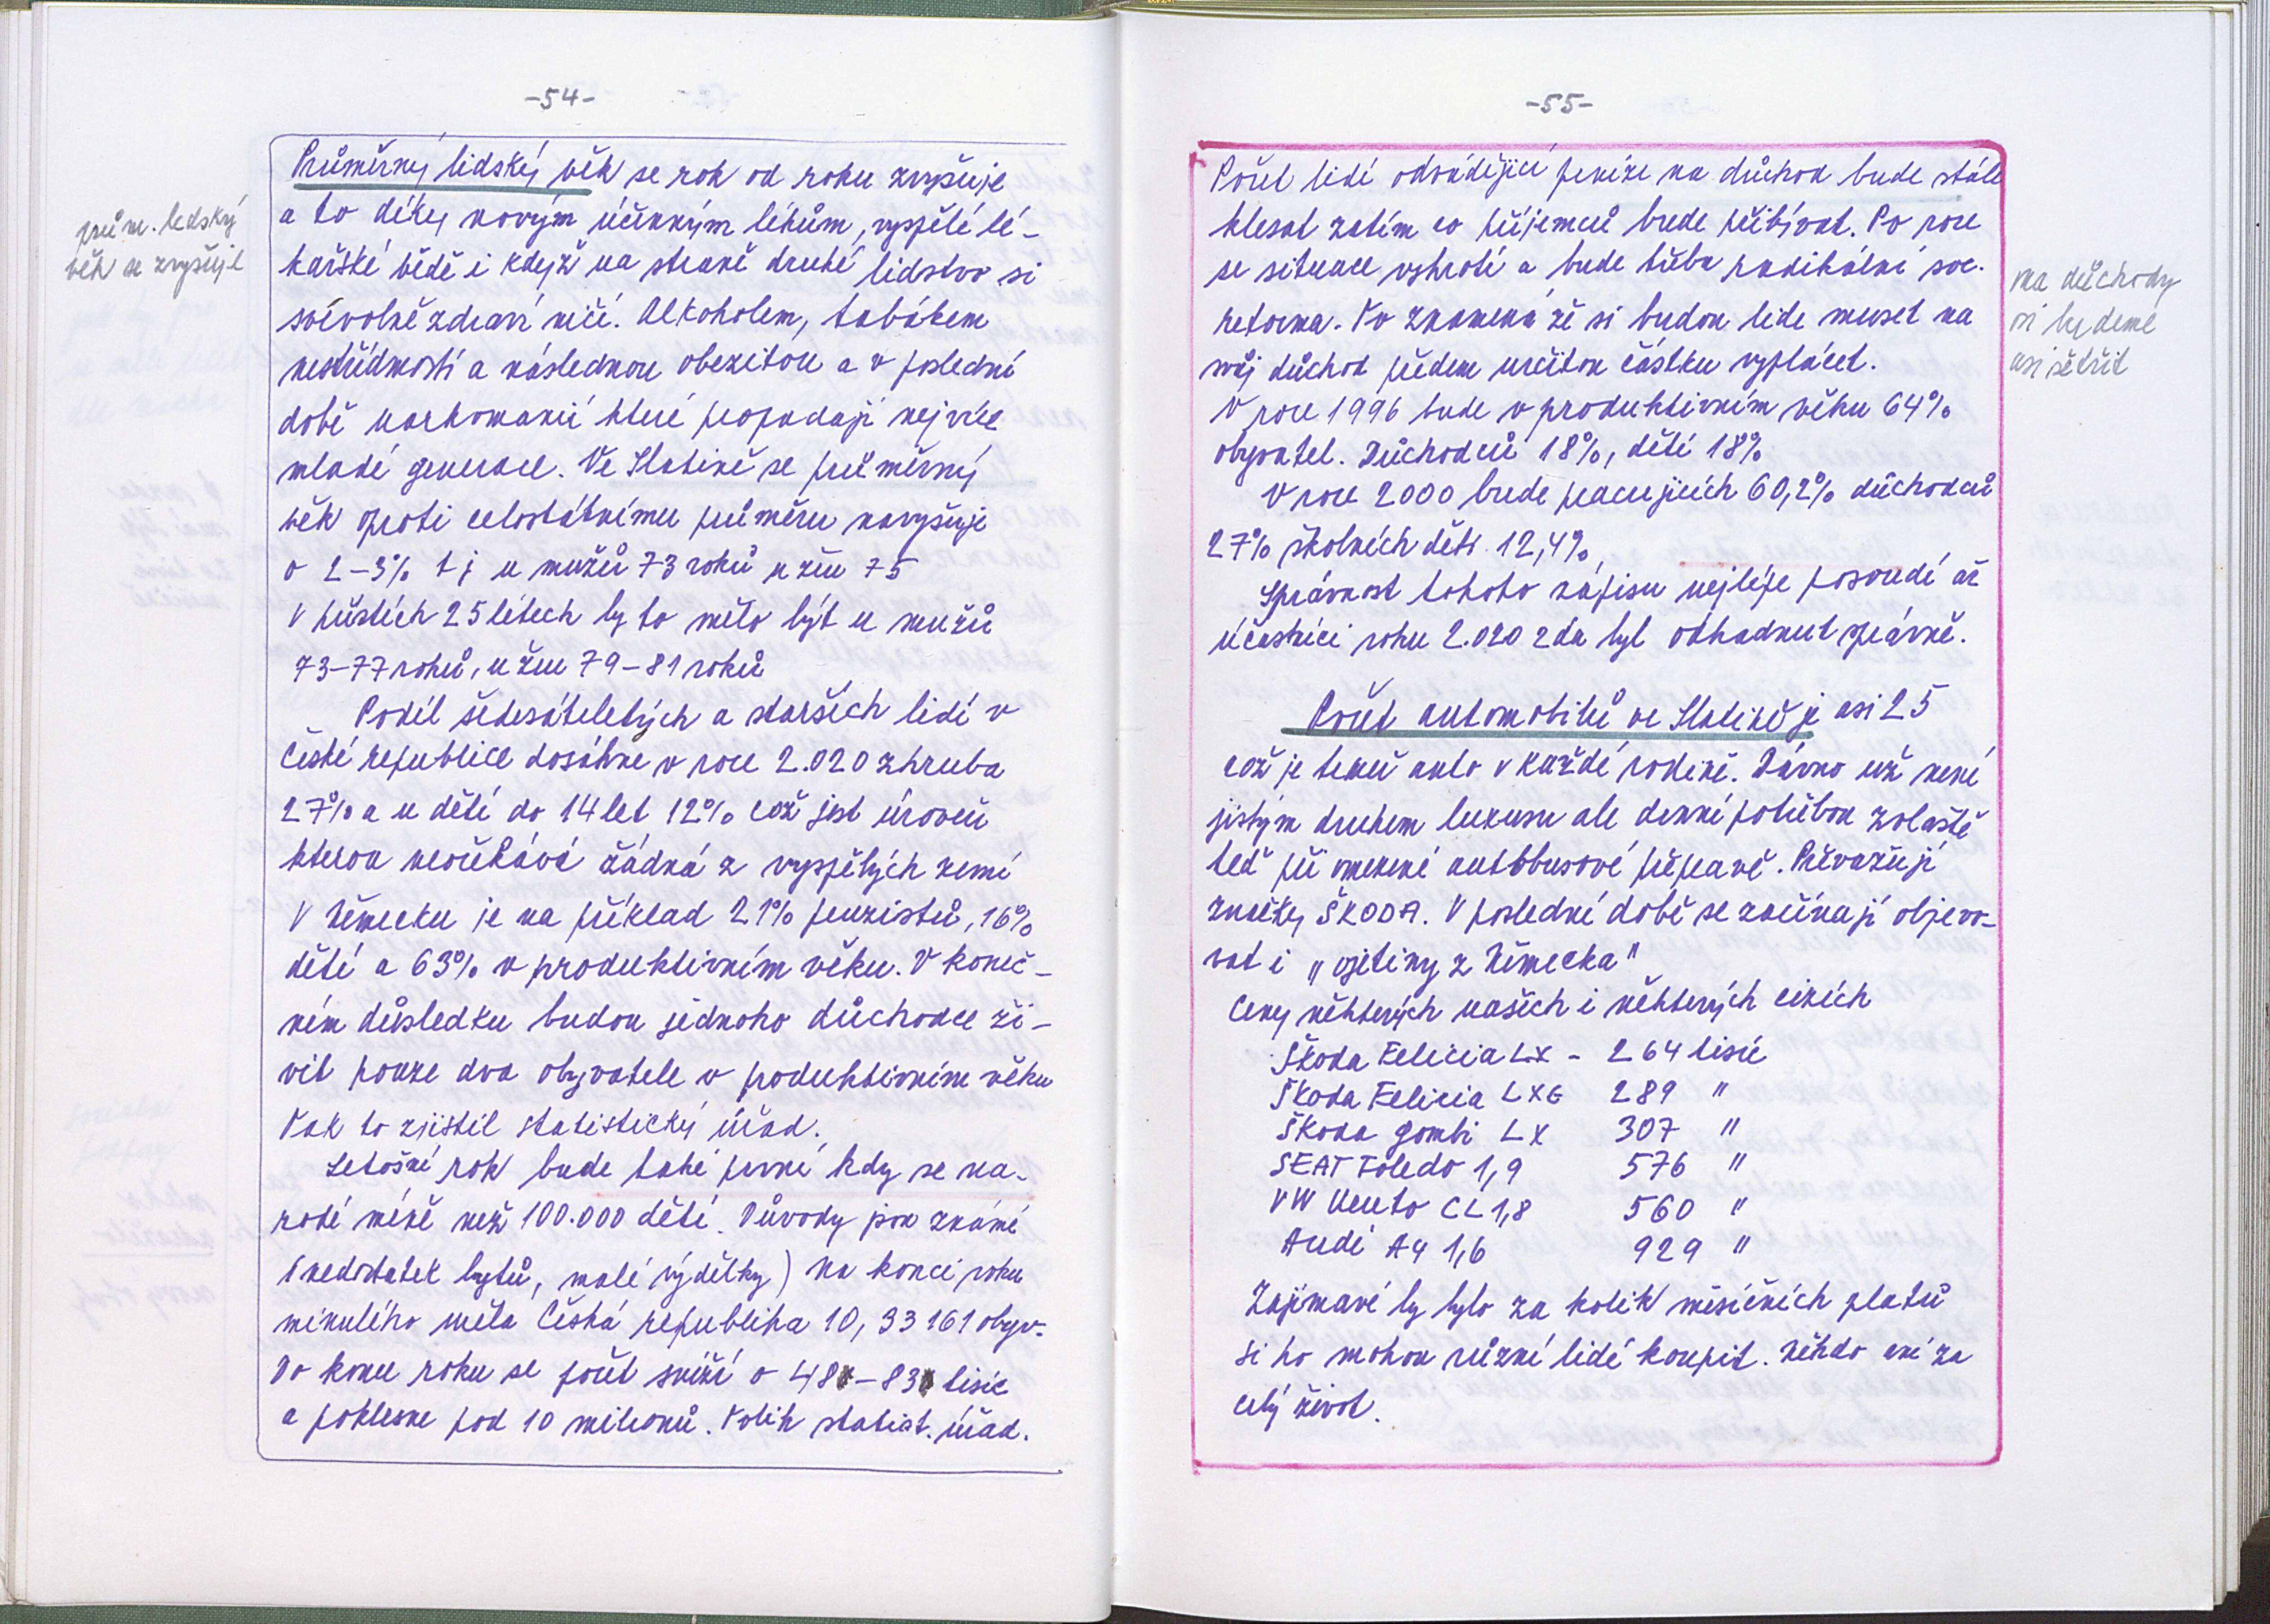 -54-
prům. ledský
věk se zvyšuje
Průměrný lidský věk se rok od roku zvyšuje
a to díky novým účinným lékům, vyspělé lé-
kařské vědě i když na straně druhé lidstvo si
svévolně zdraví ničí. Alkoholem, tabákem
nestřídmostí a následnou obezitou a v poslední
době narkomanií které propadají nejvíce
mladé generace. Ve Slatině se průměrný
věk oproti celostátnímu průměru navyšuje
o 2-3% tj u mužů 73 roků u žen 75
V příštích 25 létech by to mělo být u mužů
73-77 roků, u žen 79-81 roků
Podíl šedesátiletých a starších lidí v
České republice dosáhne v roce 2.020 zhruba
27% a u dětí do 14 let 12% což jest úroveň
kterou neočekává žádná z vyspělých zemí
V Německu je na příklad 21% penzistů, 16%
dětí a 63% v produktivním věku. V koneč-
ném důsledku budou jednoho důchodce ži-
vit pouze dva obyvatele v produktivním věku
Tak to zjistil statistický úřad.
Letošní rok bude také první kdy se na-
rodí méně než 100.000 dětí. Důvody jsou známé
(nedostatek bytů, malé výdělky) Na konci roku
minulého měla Česká republika 10,33161 obyv.
Do konce roku se počet sníží o 48-83 tisíc
a poklesne pod 10 milionů. Tolik statist. úřad.
-55-
Počet lidí odvádějící peníze na důchod bude stále
klesat zatím co příjemců bude přibívat. Po roce
se situace vyhrotí a bude třeba radikální soc.
reforma. To znamená že si budou lidé muset na
svůj důchod předem určitou částku vyplácet.
V roce 1996 bude v produktivním věku 64%
obyvatel. Důchodců 18%, dětí 18%
V roce 2000 bude pracujících 60,2% důchodců
27% školních dětí 12,4%
Správnost tohoto zápisu nejlépe posoudí až
účastníci roku 2.020 zda byl odhadnut správně.
na důchody
si budeme
asi šetřit
Počet automobilů ve Slatině je asi 25
což je téměř auto v každé rodině. Dávno už není
jistým druhem luxusu ale denní potřebou zvlaště
teď při omezené autobusové přepravě. Převažují
značky ŠKODA. V poslední době se začínají objevo-
vat i "ojetiny z Německa"
Ceny některých našich i některých cizích
Škoda Felicia LX - 264 tisíc
Škoda Felicia LXG 289 "
Škoda Gombi LX 307 "
SEAT Toledo 1,9 576 "
VW Vento CL 1,8 560 "
Audi A4 1,6 929 "
Zajímavé by bylo za kolik měsíčních platů
si ho mohou různí lidé koupit. Někdo ani za
celý život.